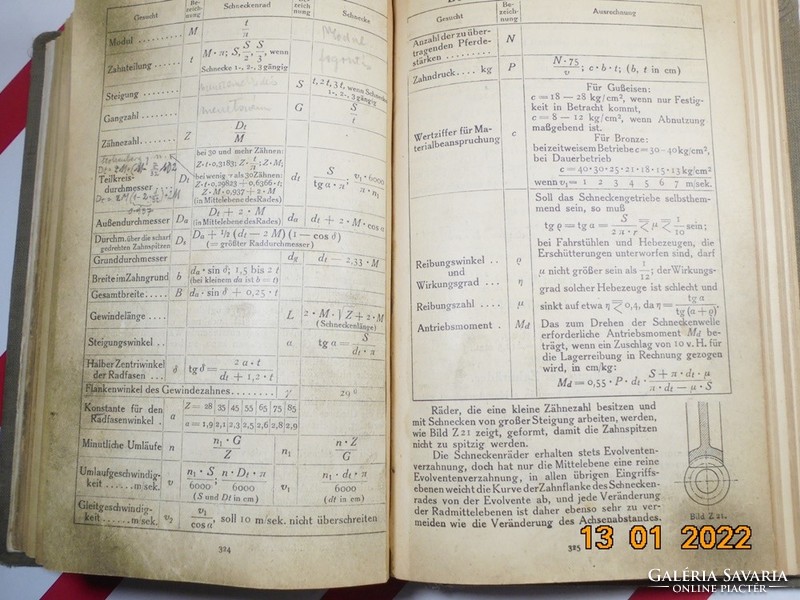 Gesucht Be-zeich-nung Schneckenrad Be-zeich-nung Schnecke
Modul M t / π
Zahnteilung t M · π; S, S/2, S/3, wenn
Schnecke 1-, 2-, 3 gängig
Steigung S t, 2 t, 3 t, wenn Schnecke
1-, 2-, 3 gängig
Gangzahl G S / t
Zähnezahl Z Dt / M
Teilkreis-
durchmesser Dt
bei 30 und mehr Zähnen:
Z · t · 0,3183; Z · t / π; Z · M;
bei wenig > als 30 Zähnen:
Z · t · 0,29823 + 0,6366 · t;
Z · M · 0,937 + 2 · M
(in Mittelebene des Rades)
dt S / tg α · π; v₁ · 6000 / π · n₁
Außendurchmesser Da Dt + 2 · M
(in Mittelebene des Rades) da dt + 2 · M · cos α
Durchm. über die scharf
gedrehten Zahnspitzen Ds Da + ½ (dt − 2 M) (1 − cos δ)
(= größter Raddurchmesser)
Grunddurchmesser dg dt − 2,33 · M
Breite im Zahngrund b da · sin δ; 1,5 bis 2 t
(bei kleinem da ist b = t)
Gesamtbreite B da · sin δ + 0,25 · t
Gewindelänge L 2 · M · √Z + 2 · M
(Schneckenlänge)
Steigungswinkel α tg α = S / dt · π
Halber Zentriwinkel
der Radfasen δ tg δ = 2 a · t / dt + 1,2 · t
Flankenwinkel des Gewindezahnes γ 29°
Konstante für den
Radfasenwinkel a
Z = 28 35 45 55 65 75 85
a = 1,9 2,1 2,3 2,5 2,6 2,8 2,9
Minutliche Umläufe n n₁ · G / Z n₁ n · Z / G
Umlaufgeschwindig-
keit m/sek. v n₁ · S / 6000; n · Dt · π / 6000
(S und Dt in cm) v₁ n₁ · dt · π / 6000
(dt in cm)
Gleitgeschwindig-
keit m/sek. v₂ v₁ / cos α, soll 10 m/sek. nicht überschreiten
324
Gesucht Be-zeich-nung Ausrechnung
Anzahl der zu über-
tragenden Pferde-
stärken N
Zahndruck kg P N · 75 / v; c · b · t; (b, t in cm)
Wertziffer für Ma-
terialbeanspruchung c
Für Gußeisen:
c = 18 — 28 kg/cm², wenn nur Festig-
keit in Betracht kommt,
c = 8 — 12 kg/cm², wenn Abnutzung
maßgebend ist.
Für Bronze:
bei zeitweisem Betriebe c = 30-40 kg/cm²,
bei Dauerbetrieb
c = 40 · 30 · 25 · 21 · 18 · 15 · 13 kg/cm²
wenn v₁ = 1 2 3 4 5 6 7 m/sek.
Reibungswinkel ϱ
und
Wirkungsgrad η
Reibungszahl μ
Soll das Schneckengetriebe selbsthem-
mend sein, so muß
tg ϱ = tg α = S / 2 π · r ⋜ μ ⋜ 1 / 10 sein;
bei Fahrstühlen und Hebezeugen, die
Erschütterungen unterworfen sind, darf
μ nicht größer sein als 1 / 12; der Wirkungs-
grad solcher Hebezeuge ist schlecht und
sinkt auf etwa η ⋜ 0,4, da η = tg α / tg (α + ϱ).
Antriebsmoment Md
Das zum Drehen der Schneckenwelle
erforderliche Antriebsmoment Md be-
trägt, wenn ein Zuschlag von 10 v. H. für
die Lagerreibung in Rechnung gezogen
wird, in cm/kg:
Md = 0,55 · P · dt · S + π · dt · μ / π · dt − μ · S
Räder, die eine kleine Zähnezahl besitzen und
mit Schnecken von großer Steigung arbeiten, werden,
wie Bild Z 21 zeigt, geformt, damit die Zahnspitzen
nicht zu spitzig werden.
Die Schneckenräder erhalten stets Evolventen-
verzahnung, doch hat nur die Mittelebene eine reine
Evolventenverzahnung, in allen übrigen Eingriffs-
ebenen weicht die Kurve der Zahnflanke des Schnecken-
rades von der Evolvente ab, und jede Veränderung
der Radmittelebenen ist daher ebenso sehr zu ver-
meiden wie die Veränderung des Achsenabstandes.
Bild Z 21.
325
13 01 2022
GALÉRIA SAVARIA
ONLINE PIACTÉR